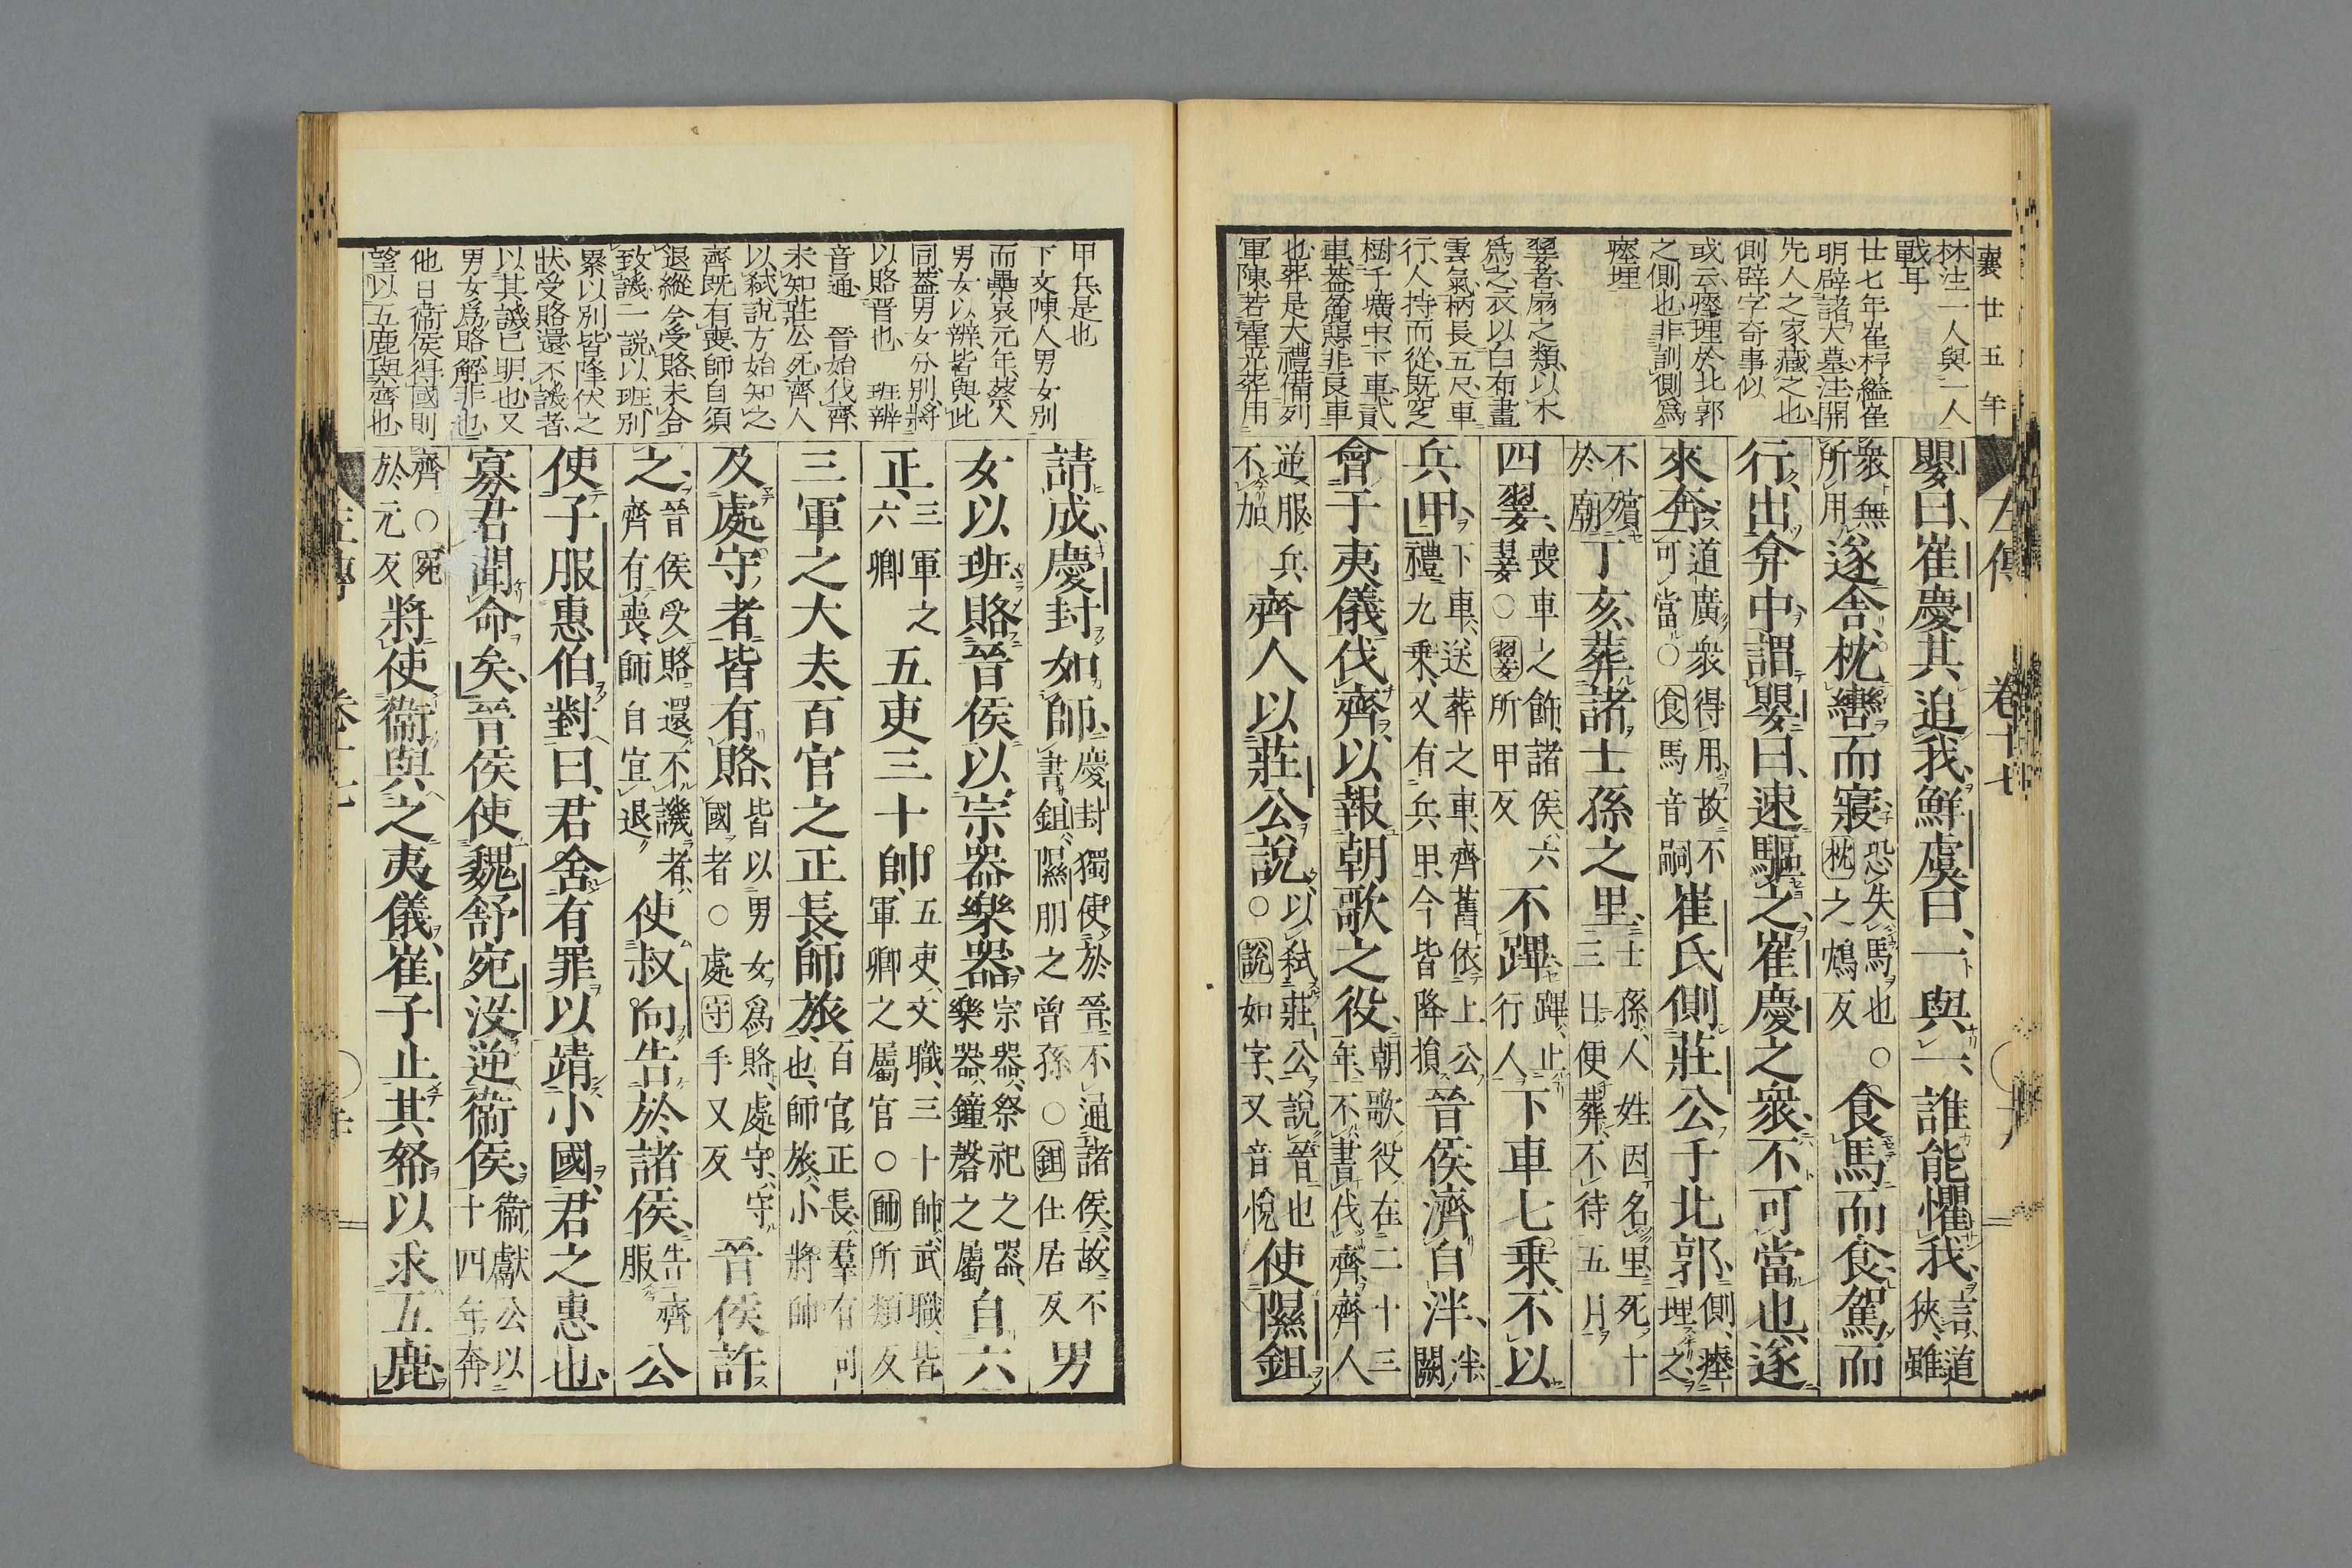 襄廿五年
林注一人與一人
戰耳
廿七年崔杼縊崔
明辟諸大墓注開
先人之家藏之也
側辟字奇事似
或云瘞埋於北郭
之側也非訓側爲
瘞埋
翣者扇之類以木
爲之衣以白布畫
雲氣柄長五尺車
行人持而從既窆
樹于壙中下車貳
車葢麄惡非良車
也葬是大禮備列
軍陳若霍光葬用
左傳 卷十七
嬰曰崔慶其追我鮮虞曰一與一誰能懼我言道
狹雖
衆無
所用遂舍枕轡而寢恐失馬也○
枕之鴆反食馬而食駕而
行出弇中謂嬰曰速驅之崔慶之衆不可當也遂
來奔道廣衆得用故不
可當○食馬音嗣崔氏側莊公于北郭側瘞
埋之
不殯
於廟丁亥葬諸士孫之里士孫人姓因名里死十
三日便葬不待五月
四翣喪車之飾諸侯六
翣○翣所甲反不蹕蹕止
行人下車七乘不以
兵甲下車送葬之車齊舊依上公
禮九乘又有兵甲今皆降損晉侯濟自泮泮
闕
會于夷儀伐齊以報朝歌之役朝歌役在二十三
年不書伐齊齊人
逆服
不加兵齊人以莊公說以弑莊公說晉也
○說如字又音悅使隰鉏
甲兵是也
下文陳人男女別
而纍哀元年蔡人
男女以辨皆與此
同葢男女分別將
以賂晉也 班辨
音通 晉始伐齊
未知莊公死齊人
以弑說方始知之
齊既有喪師自須
退縱令受賂未合
致譏一說以班別
累以別皆降伏之
狀受賂還不譏者
以其譏已明也又
男女爲賂解非也
他日衞侯得國則
望以五鹿與齊也
請成慶封如師慶封獨使於晉不通諸侯故不
書鉏隰朋之曾孫○鉏仕居反男
女以班賂晉侯以宗器樂器宗器祭祀之器
樂器鐘磬之屬自六
正三軍之
六卿五吏三十帥五吏文職三十帥武職皆
軍卿之屬官○帥所類反
三軍之大夫百官之正長師旅百官正長羣有司
也師旅小將帥
及處守者皆有賂皆以男女爲賂處守守
國者○處守手又反晉侯許
之晉侯受賂還不譏者
齊有喪師自宜退使叔向告於諸侯告齊
服公
使子服惠伯對曰君舍有罪以靖小國君之惠也
寡君聞命矣晉侯使魏舒宛沒逆衞侯衞獻公以
十四年奔
齊○宛
於元反將使衞與之夷儀崔子止其帑以求五鹿